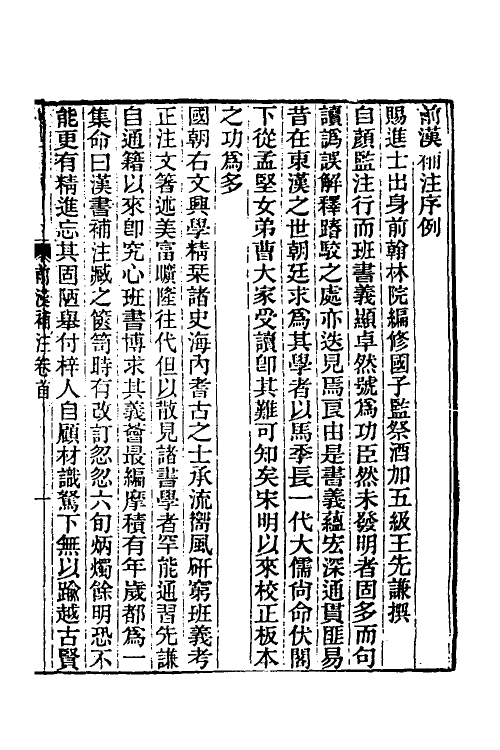 前漢補注序例
賜進士出身前翰林院編修國子監祭酒加五級王先謙撰
自顏監注行而班書義顯卓然號爲功臣然未發明者固多而句
讀譌誤解釋踳駮之處亦迭見焉良由是書義蘊宏深通貫匪易
昔在東漢之世朝廷求爲其學者以馬季長一代大儒尙命伏閣
下從孟堅女弟曹大家受讀卽其難可知矣宋明以來校正板本
之功爲多
國朝右文興學精槧諸史海內耆古之士承流嚮風硏窮班義考
正注文箸述美富曠隆往代但以散見諸書學者罕能通習先謙
自通籍以來卽究心班書博求其義薈最編摩積有年歲都爲一
集命曰漢書補注臧之篋笥時有改訂忽忽六旬炳燭餘明恐不
能更有精進忘其固陋舉付梓人自顧材識駑下無以踰越古賢
前漢補注卷首
一